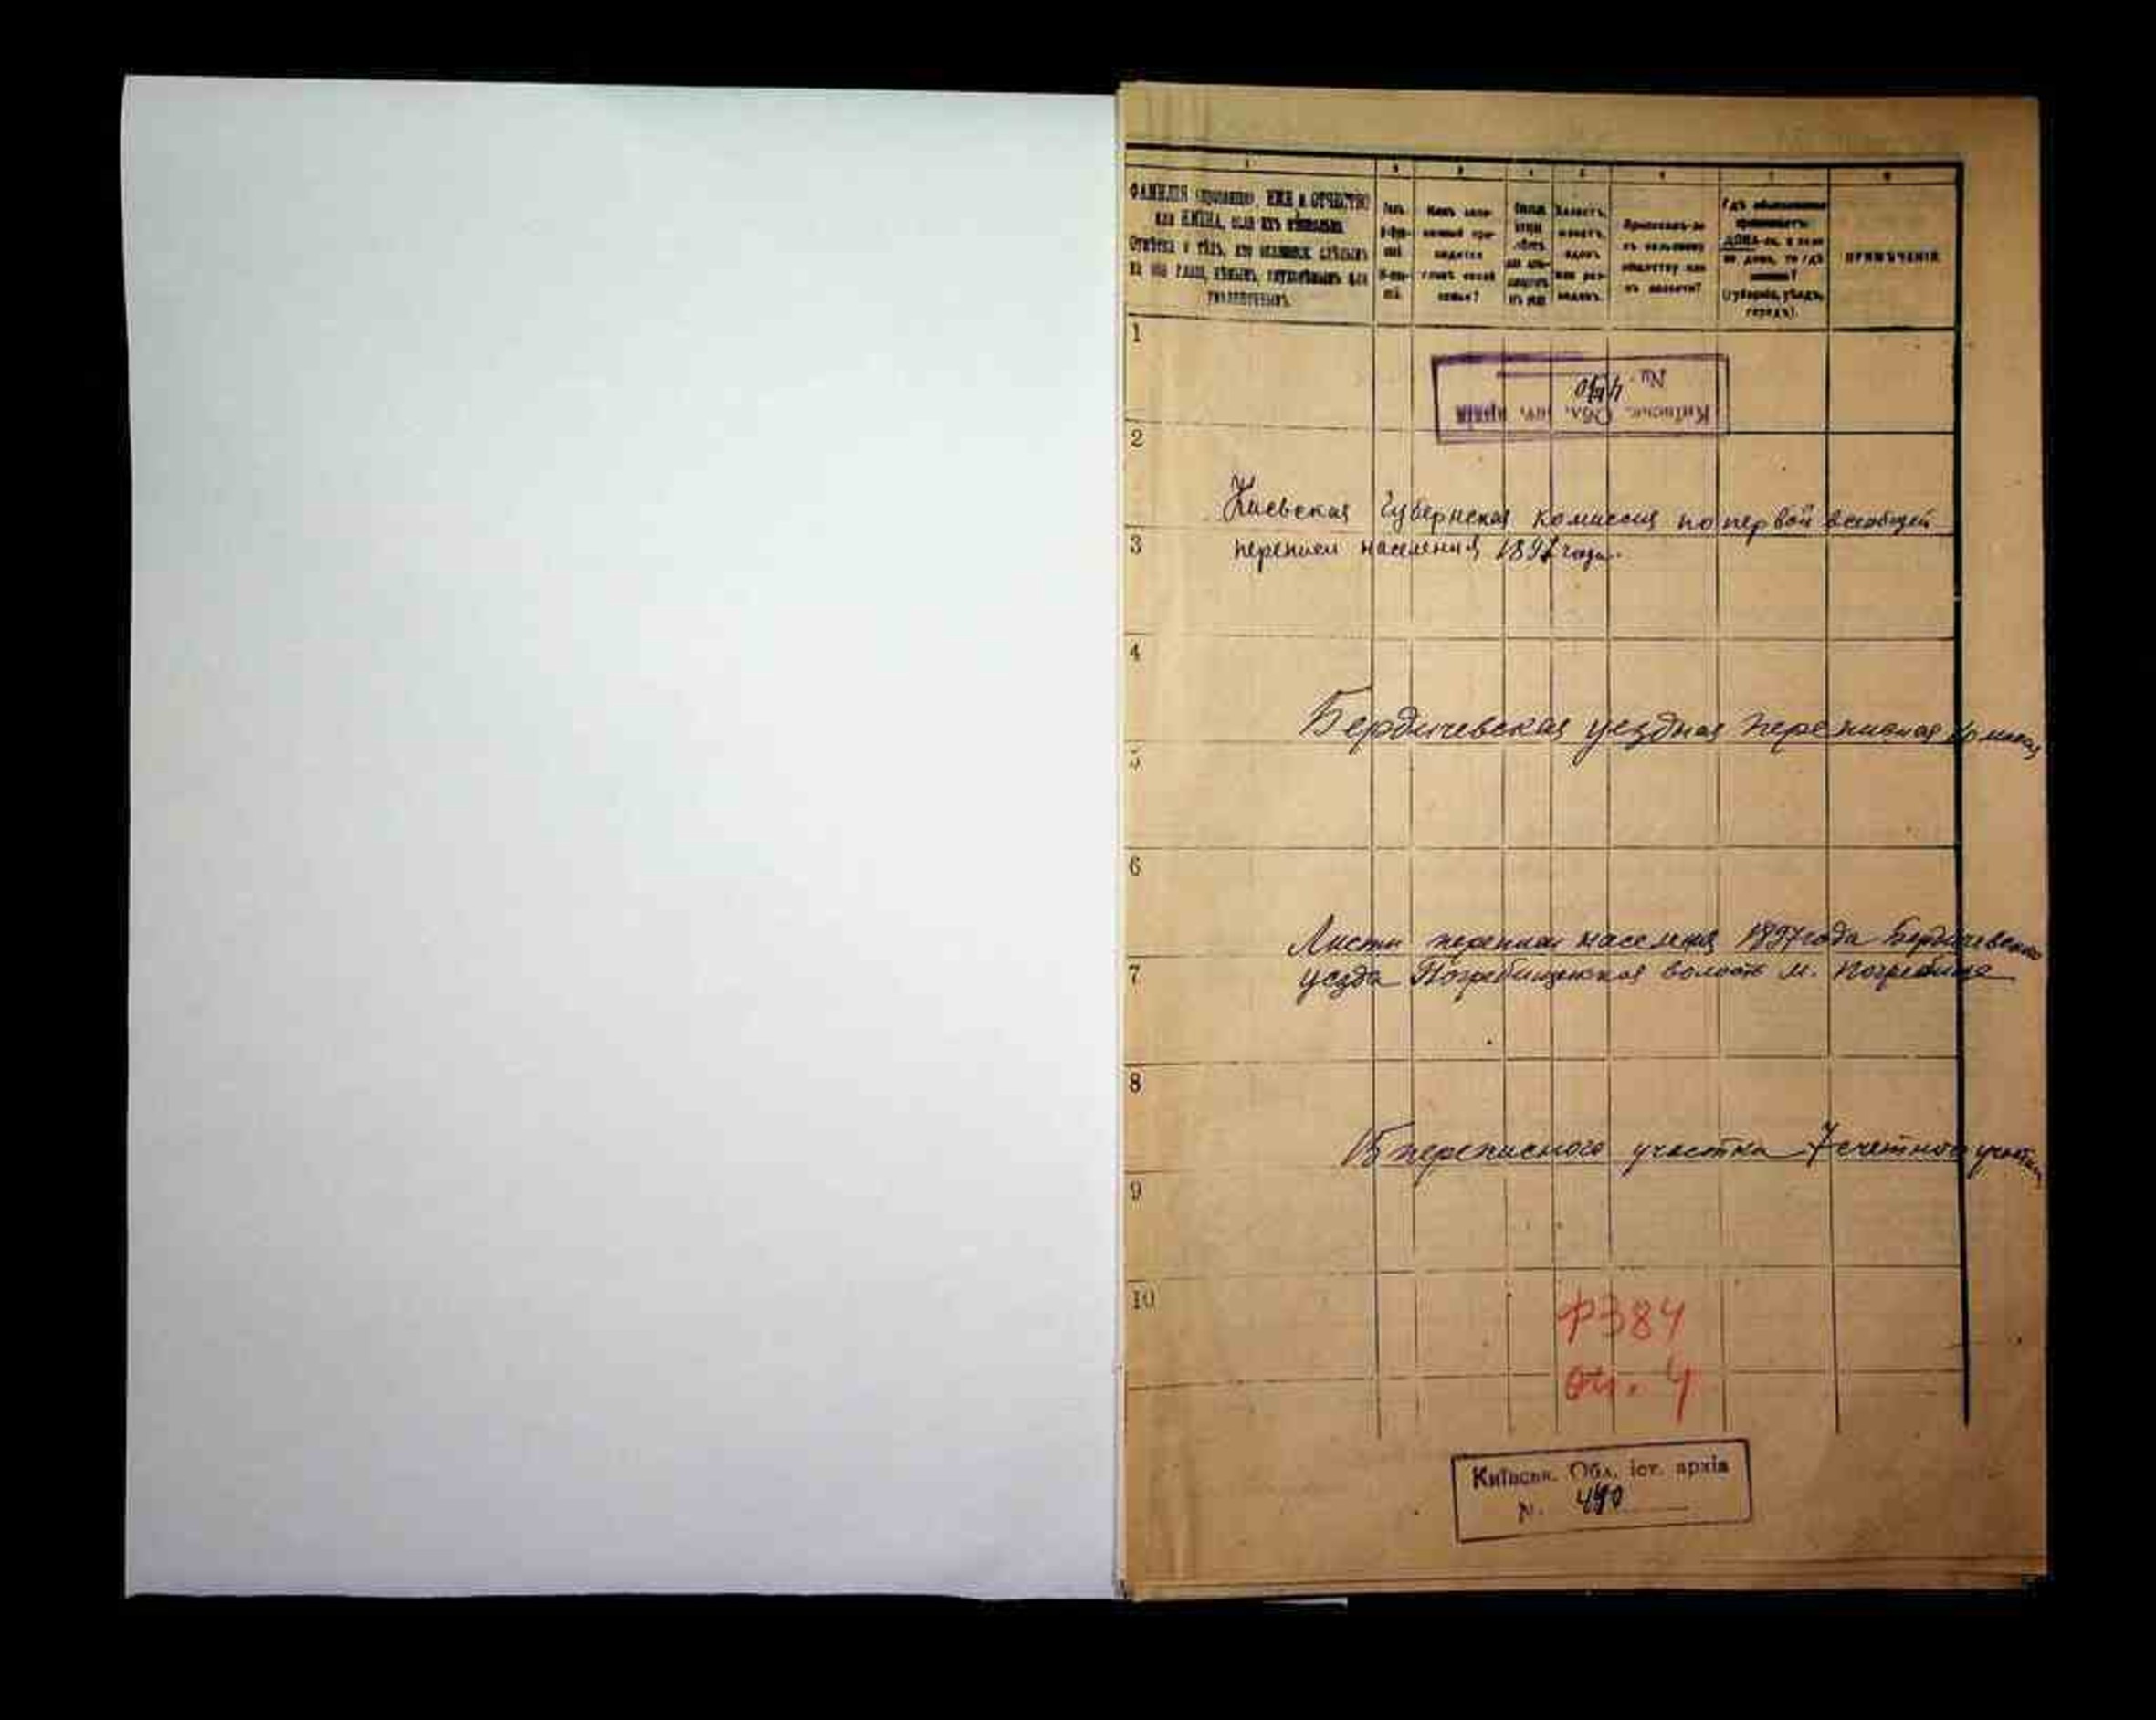 1 2 3 4 5 6 7 8
ФАМИЛІЯ (прозвище), ИМЯ и ОТЧЕСТВО
или ИМЕНА, если ихъ нѣсколько
Отмѣтка о тѣхъ, кто окажется слѣпымъ
на оба глаза, нѣмымъ, глухонѣмымъ или
умалишеннымъ.
Полъ
Какъ запи-
санный при-
ходится
главѣ своей
семьи?
Холостъ,
женатъ,
вдовъ
или раз-
веденъ.
къ сельскому
обществу или
къ волости?
Гдѣ обыкновенно
проживаетъ:
(губернія, уѣздъ,
городъ).
ПРИМѢЧАНІЯ.
1
Київськ. Обл. іст. архів
№. 440
2
Киевская Губернская комиссия по первой всеобщей
3
переписи населения 1897 года.
4
Бердичевская уездная переписная комисия
5
6
Листы переписи населения 1897 года Бердичевского
7
уезда Погребищенская волость м. Погребище
8
15 переписного участка 7 счетного участка
9
10
Ф384
оп. 4
Київськ. Обл. іст. архів
N. 440